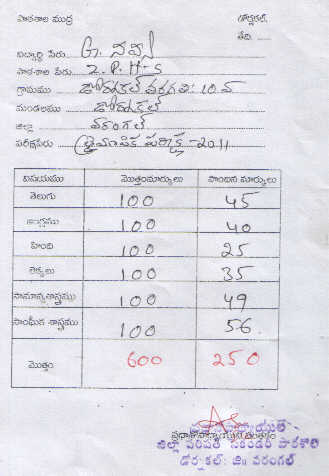 పాఠశాల ముద్ర డోర్నకల్,
తేది
విద్యార్థి పేరు G. నవీన్
పాఠశాల పేరు Z. P. H-S
గ్రామము డోర్నకల్ తరగతి: 10 వ
మండలము డోర్నకల్
జిల్లా వరంగల్
పరీక్షపేరు త్రైమాసిక పరీక్ష -2011
విషయము మొత్తంమార్కులు పొందిన మార్కులు
తెలుగు 100 45
ఇంగ్లీషు 100 40
హింది 100 25
లెక్కలు 100 35
సామాన్యశాస్త్రము 100 49
సాంఘీక శాస్త్రము 100 56
మొత్తం 600 250
ప్రధానోపాధ్యాయుని సంతకం
ప్రధానోపాధ్యాయులు
జిల్లా పరిషత్ సెకండరీ పాఠశాల
డోర్నకల్. జిః వరంగల్